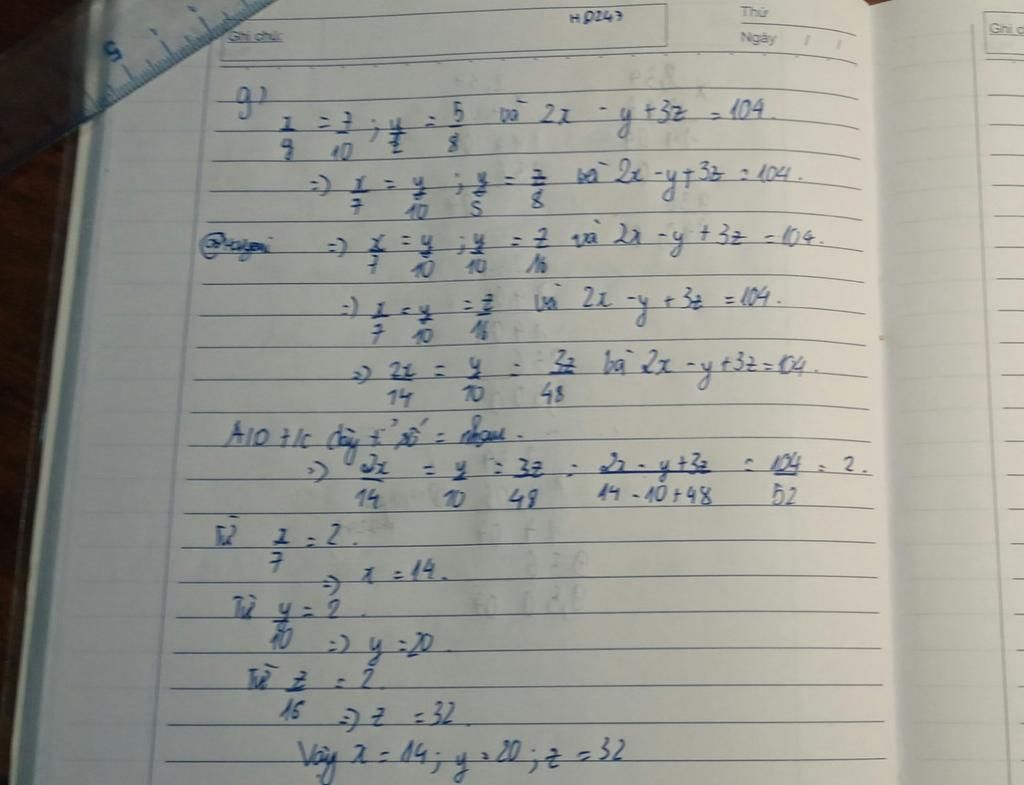 5
HD247
Ghi chú:
Thứ
Ngày / /
Ghi c
g)
x/y = 7/10 ; y/z = 5/8 và 2x - y + 3z = 104
=) x/7 = y/10 ; y/5 = z/8 và 2x - y + 3z = 104.
=) x/7 = y/10 ; y/10 = z/16 và 2x - y + 3z = 104.
=) x/7 = y/10 = z/16 và 2x - y + 3z = 104.
=) 2x/14 = y/10 = 3z/48 và 2x - y + 3z = 104.
AD t/c dãy tỉ số = nhau.
=) 2x/14 = y/10 = 3z/48 = 2x - y + 3z/14 - 10 + 48 = 104/52 = 2.
Từ x/7 = 2.
=) x = 14.
Từ y/10 = 2.
=) y = 20
Từ z/16 = 2
=) z = 32
Vậy x = 14; y = 20; z = 32